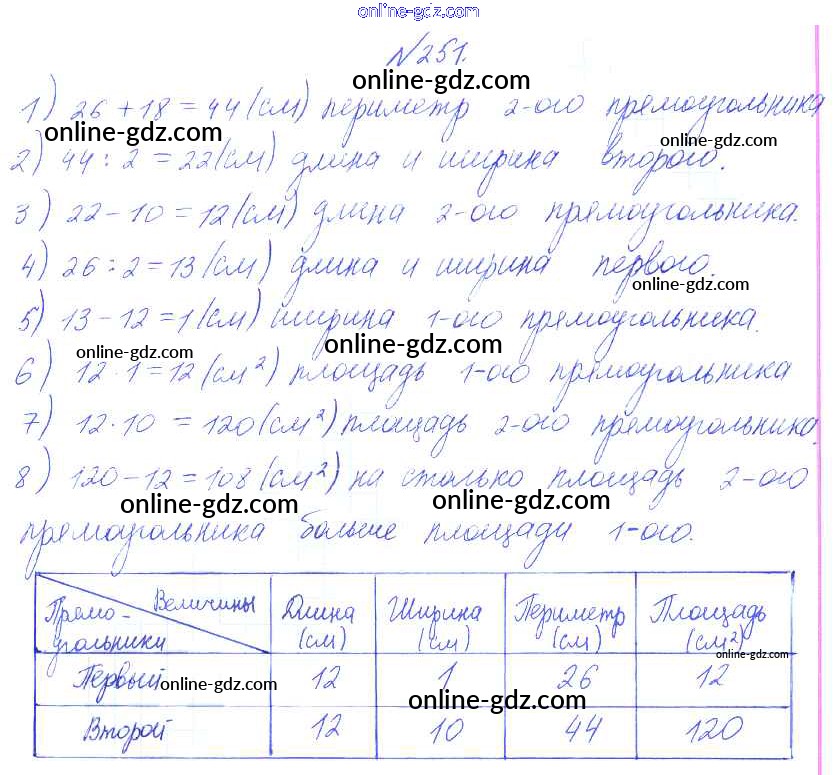 online-gdz.com
№251.
online-gdz.com
1) 26 + 18 = 44 (см) периметр 2-ого прямоугольника
online-gdz.com online-gdz.com
2) 44 : 2 = 22 (см) длина и ширина второго.
3) 22 - 10 = 12 (см) длина 2-ого прямоугольника.
4) 26 : 2 = 13 (см) длина и ширина первого.
online-gdz.com
5) 13 - 12 = 1 (см) ширина 1-ого прямоугольника.
online-gdz.com online-gdz.com
6) 12 · 1 = 12 (см²) площадь 1-ого прямоугольника
7) 12 · 10 = 120 (см²) площадь 2-ого прямоугольника.
8) 120 - 12 = 108 (см²) на столько площадь 2-ого
online-gdz.com online-gdz.com
прямоугольника больше площади 1-ого.
Прямоугольники Величины Длина (см) Ширина (см) Периметр (см) Площадь (см²)
online-gdz.com
Первый 12 1 26 12
online-gdz.com online-gdz.com
Второй 12 10 44 120